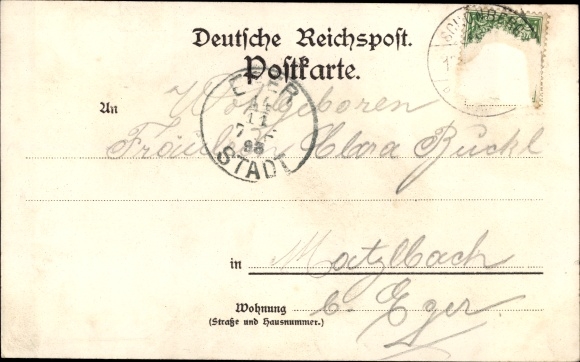 Deutsche Reichspost.
Postkarte.
An Wohlgeboren
Fräulein Clara Buckl
in Matzlbach
Wohnung b. Eger
(Straße und Hausnummer.)
EGER
11
7
98
STADT